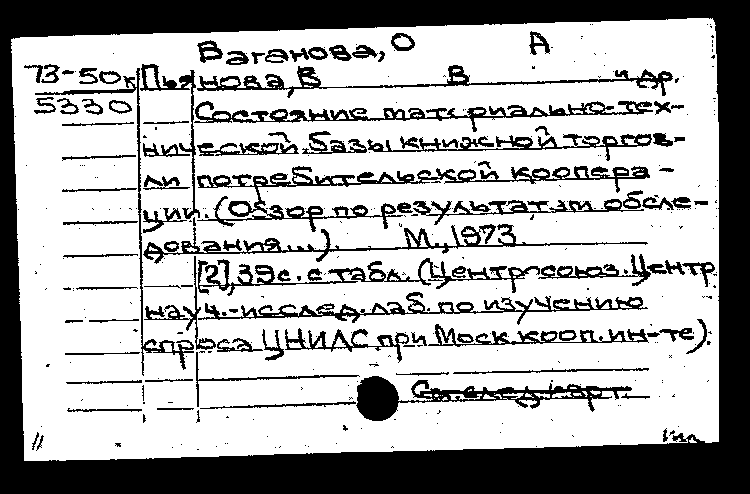 Ваганова, О А
73-50к Пьянова, В В и др.
5330 Состояние материально-тех-
нической базы книжной торгов-
ли потребительской коопера-
ции. (Обзор по результатам обсле-
дования...). М., 1973.
[2], 39с. с табл. (Центросоюз. Центр
науч.-исслед. лаб. по изучению
спроса ЦНИЛС при Моск. кооп. ин-те).
См. след. карт.
11